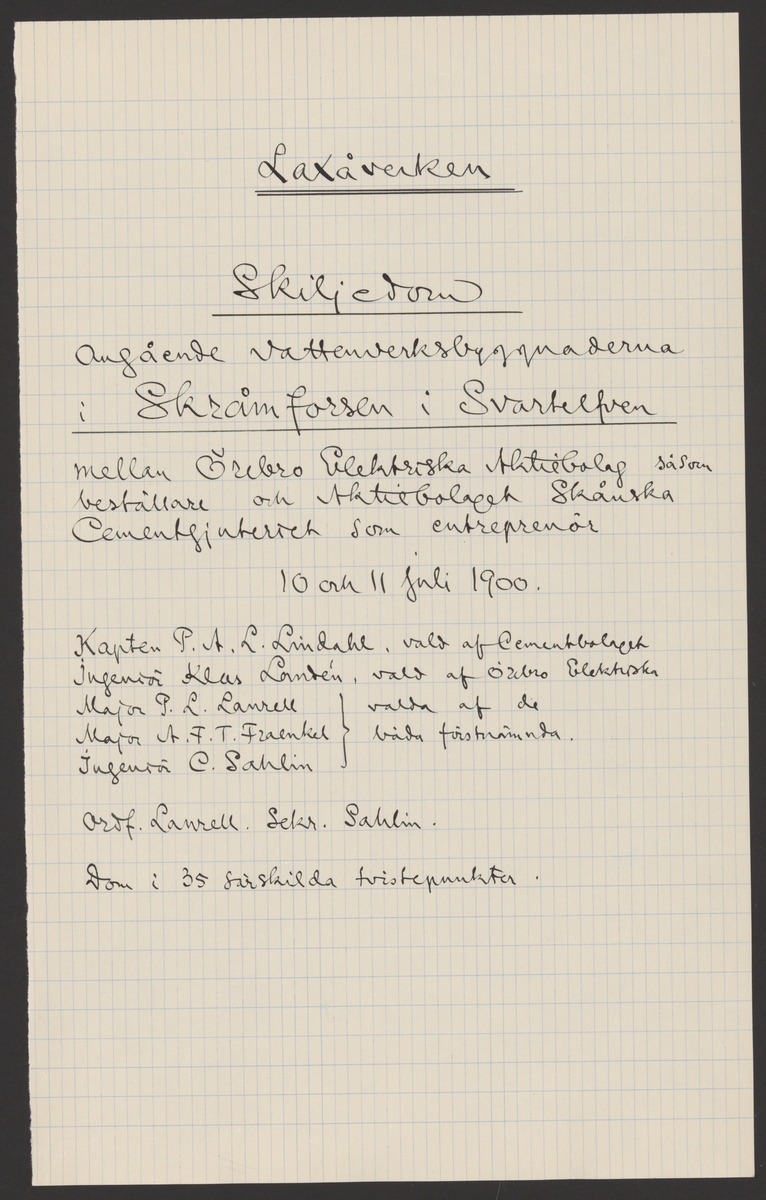 Laxåverken
Skiljedom
angående vattenverksbyggnaderna
i Skråmforsen i Svartelfven
mellan Örebro Elektriska Aktiebolag såsom
beställare och Aktiebolaget Skånska
Cementgjuteriet som entreprenör
10 och 11 juli 1900.
Kapten P. A. L. Lindahl, vald af Cementbolaget
Ingeniör Klas Londén, vald af Örebro Elektriska
Major P. L. Laurell } valda af de
Major A. F. T. Fraenkel } båda förstnämnda.
Ingeniör C. Sahlin
Ordf. Laurell. Sekr. Sahlin.
Dom i 35 särskilda tvistepunkter.